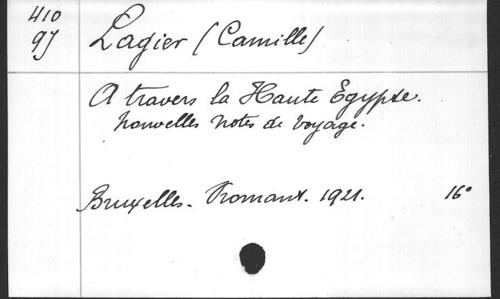 410
97
Lagier (Camille)
A travers la Haute Egypte.
Nouvelles notes de voyage.
Bruxelles. Vromant. 1921. 16°